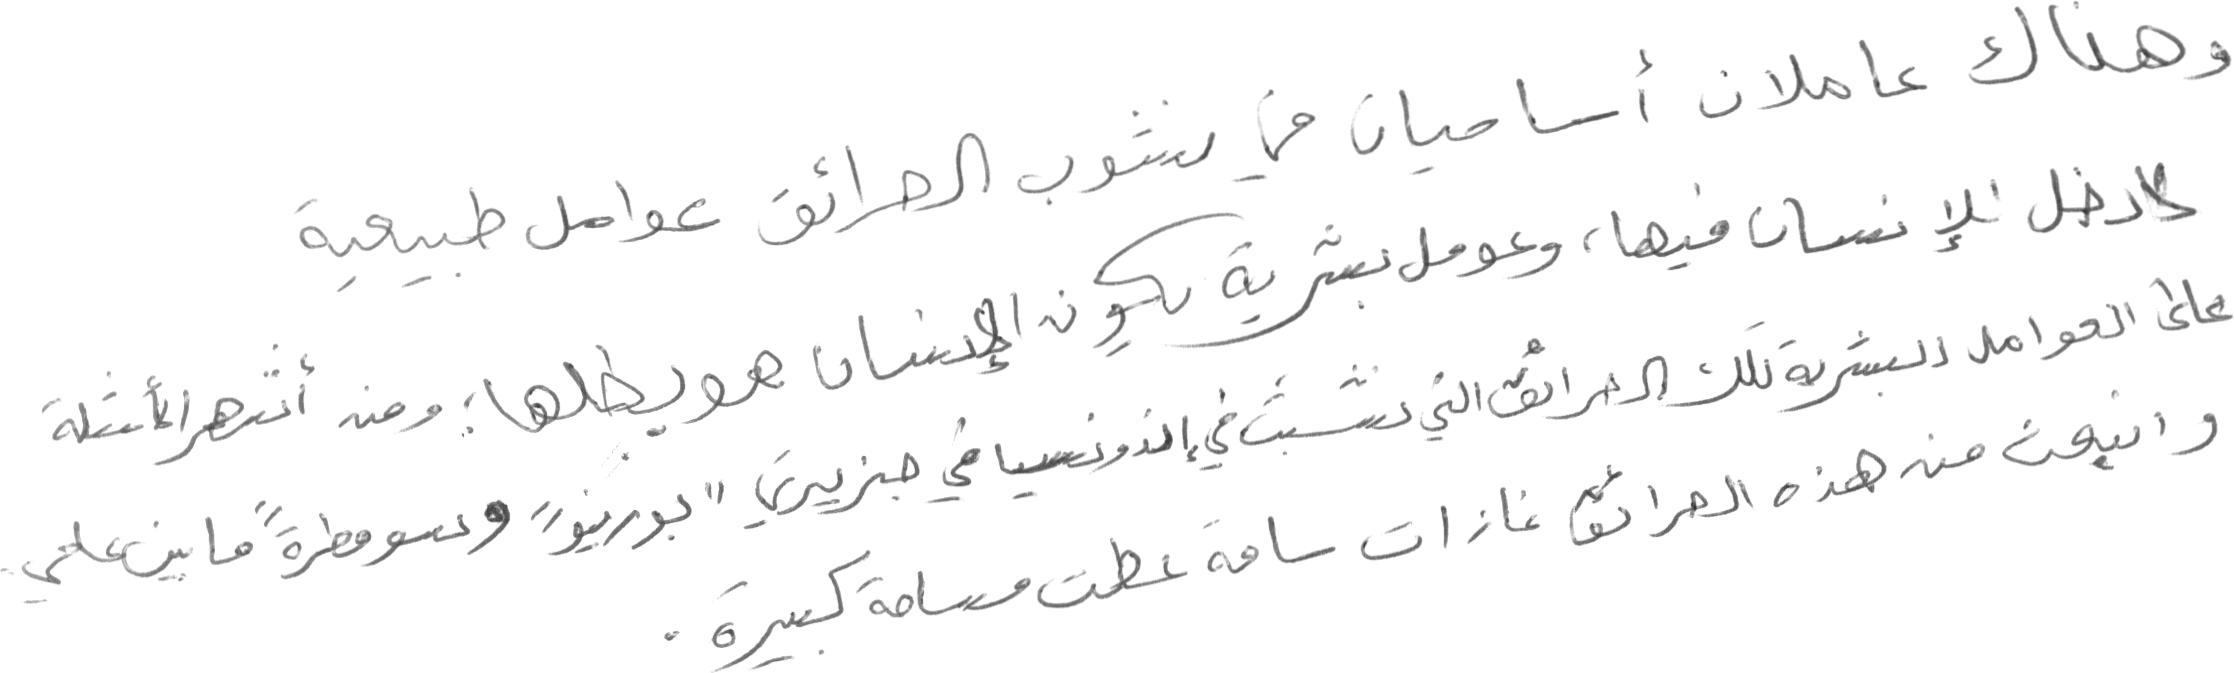 وهناك عاملان أساسيان في نشوب الحرائق عوامل طبيعية
لا دخل للإنسان فيها، وعومل بشرية يكون الإنسان هو بطلها؛ ومن أشهر الأمثلة
على العوامل البشرية تلك الحرائق التي نشبت في إندونسيا في جزيرتي "بورنيو" وسومطرة" ما بين علمي
وانبعث من هذه الحرائق غازات سامة غطت مساحة كبيرة .